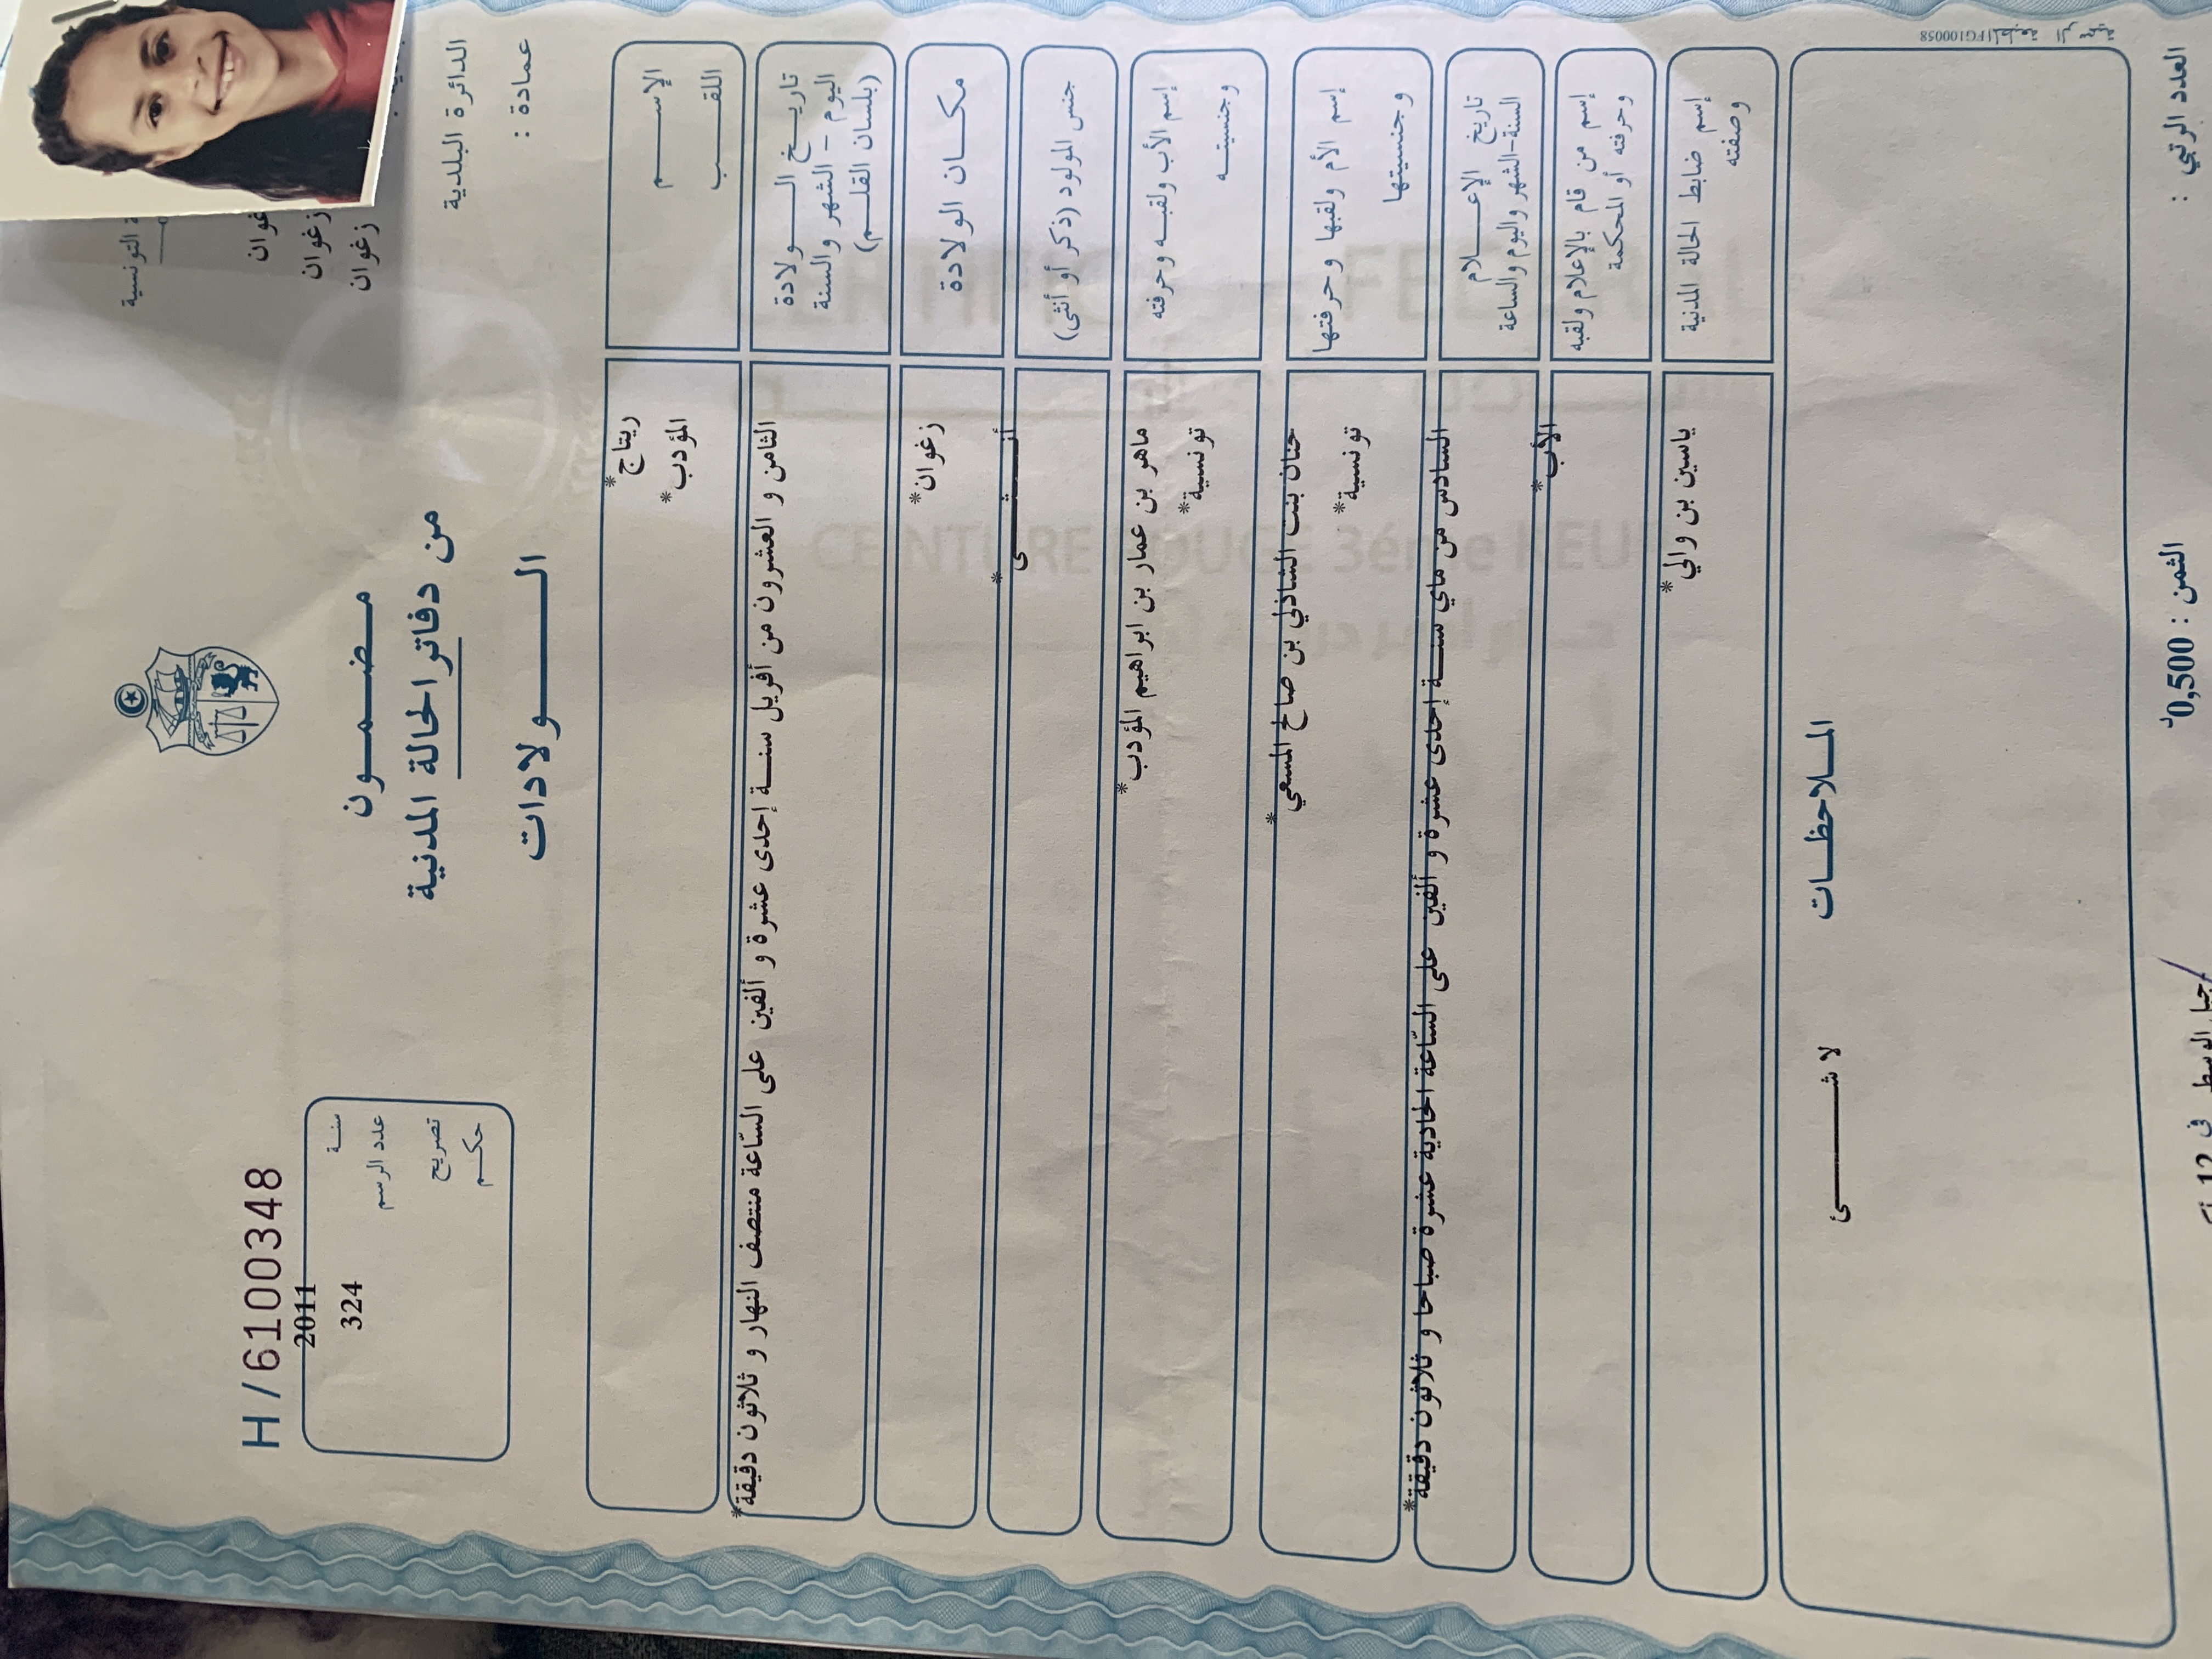 التونسية
زغوان
زغوان
H/6100348
سنة 2011
عدد الرسم 324
تصريح
حكم
مضمون
من دفاتر الحالة المدنية
الولادات
الدائرة البلدية
عمادة :
الإسم ريتاج*
اللقب المؤدب*
تاريخ الولادة
اليوم - الشهر والسنة
(بلسان القلم)
الثامن و العشرون من أفريل سنة إحدى عشرة و ألفين على الساعة منتصف النهار و ثلاثون دقيقة*
مكان الولادة زغوان*
جنس المولود (ذكر أو أنثى) أنثى*
إسم الأب ولقبه وحرفته ماهر بن عمار بن ابراهيم المؤدب*
وجنسيته تونسية*
إسم الأم ولقبها وحرفتها حنان بنت الشاذلي بن صالح المسعي*
وجنسيتها تونسية*
تاريخ الإعلام
السنة-الشهر واليوم والساعة
السادس من ماي سنة إحدى عشرة و ألفين على السّاعة الحادية عشرة صباحا و ثلاثون دقيقة*
إسم من قام بالإعلام ولقبه
وحرفته أو المحكمة
الأب*
إسم ضابط الحالة المدنية
وصفته
ياسين بن والي*
الملاحظات
لا شئ
العدد الرتبي :
الثمن : 0,500د
جبل الوسط في 12